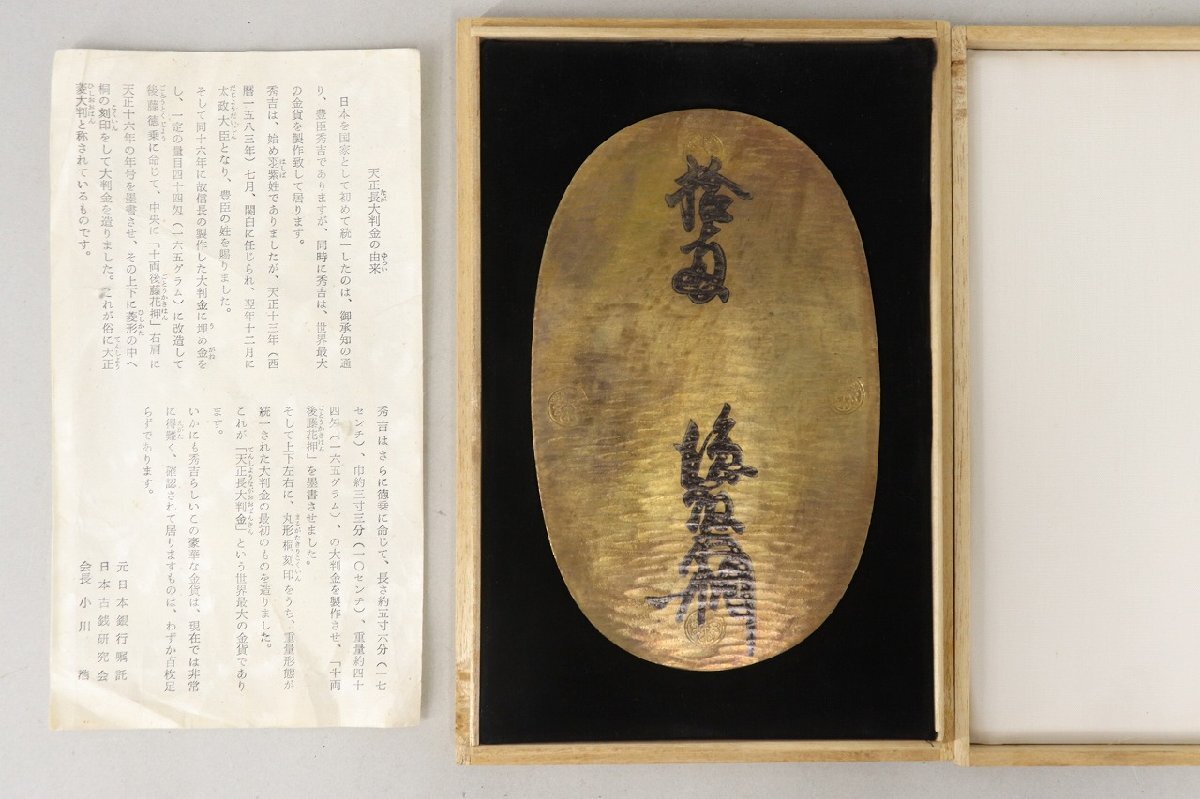 天正長大判金の由来
日本を国家として初めて統一したのは、御承知の通
り、豊臣秀吉でありますが、同時に秀吉は、世界最大
の金貨を製作致して居ります。
秀吉は、始め羽紫姓でありましたが、天正十三年(西
暦一五八三年)七月、関白に任じられ、翌年十二月に
太政大臣となり、豊臣の姓を賜りました。
そして同十六年に故信長の製作した大判金に埋の金を
し、一定の量目四十四匁(一六五グラム)に改造して
後藤徳乗に命じて、中央に「十両後藤花押」右肩に
天正十六年の年号を墨書させ、その上下に菱形の中へ
桐の刻印をして大判金を造りました。これが俗に天正
菱大判と称されているものです。
秀吉はさらに徳乗に命じて、長さ約五寸六分(一七
センチ)、巾約三寸三分(一〇センチ)、重量約四十
四匁(一六五グラム)、の大判金を製作させ、「十両
後藤花押」を墨書させました。
そして上下左右に、丸形桐刻印をうち、重量形態が
統一された大判金の最初のものを造りました。
これが「天正長大判金」という世界最大の金貨であり
ます。
いかにも秀吉らしいこの豪華な金貨は、現在では非常
に得難く、確認されて居りますものは、わずか百枚足
らずであります。
元日本銀行嘱託
日本古銭研究会
会長 小川 浩
拾両
後藤